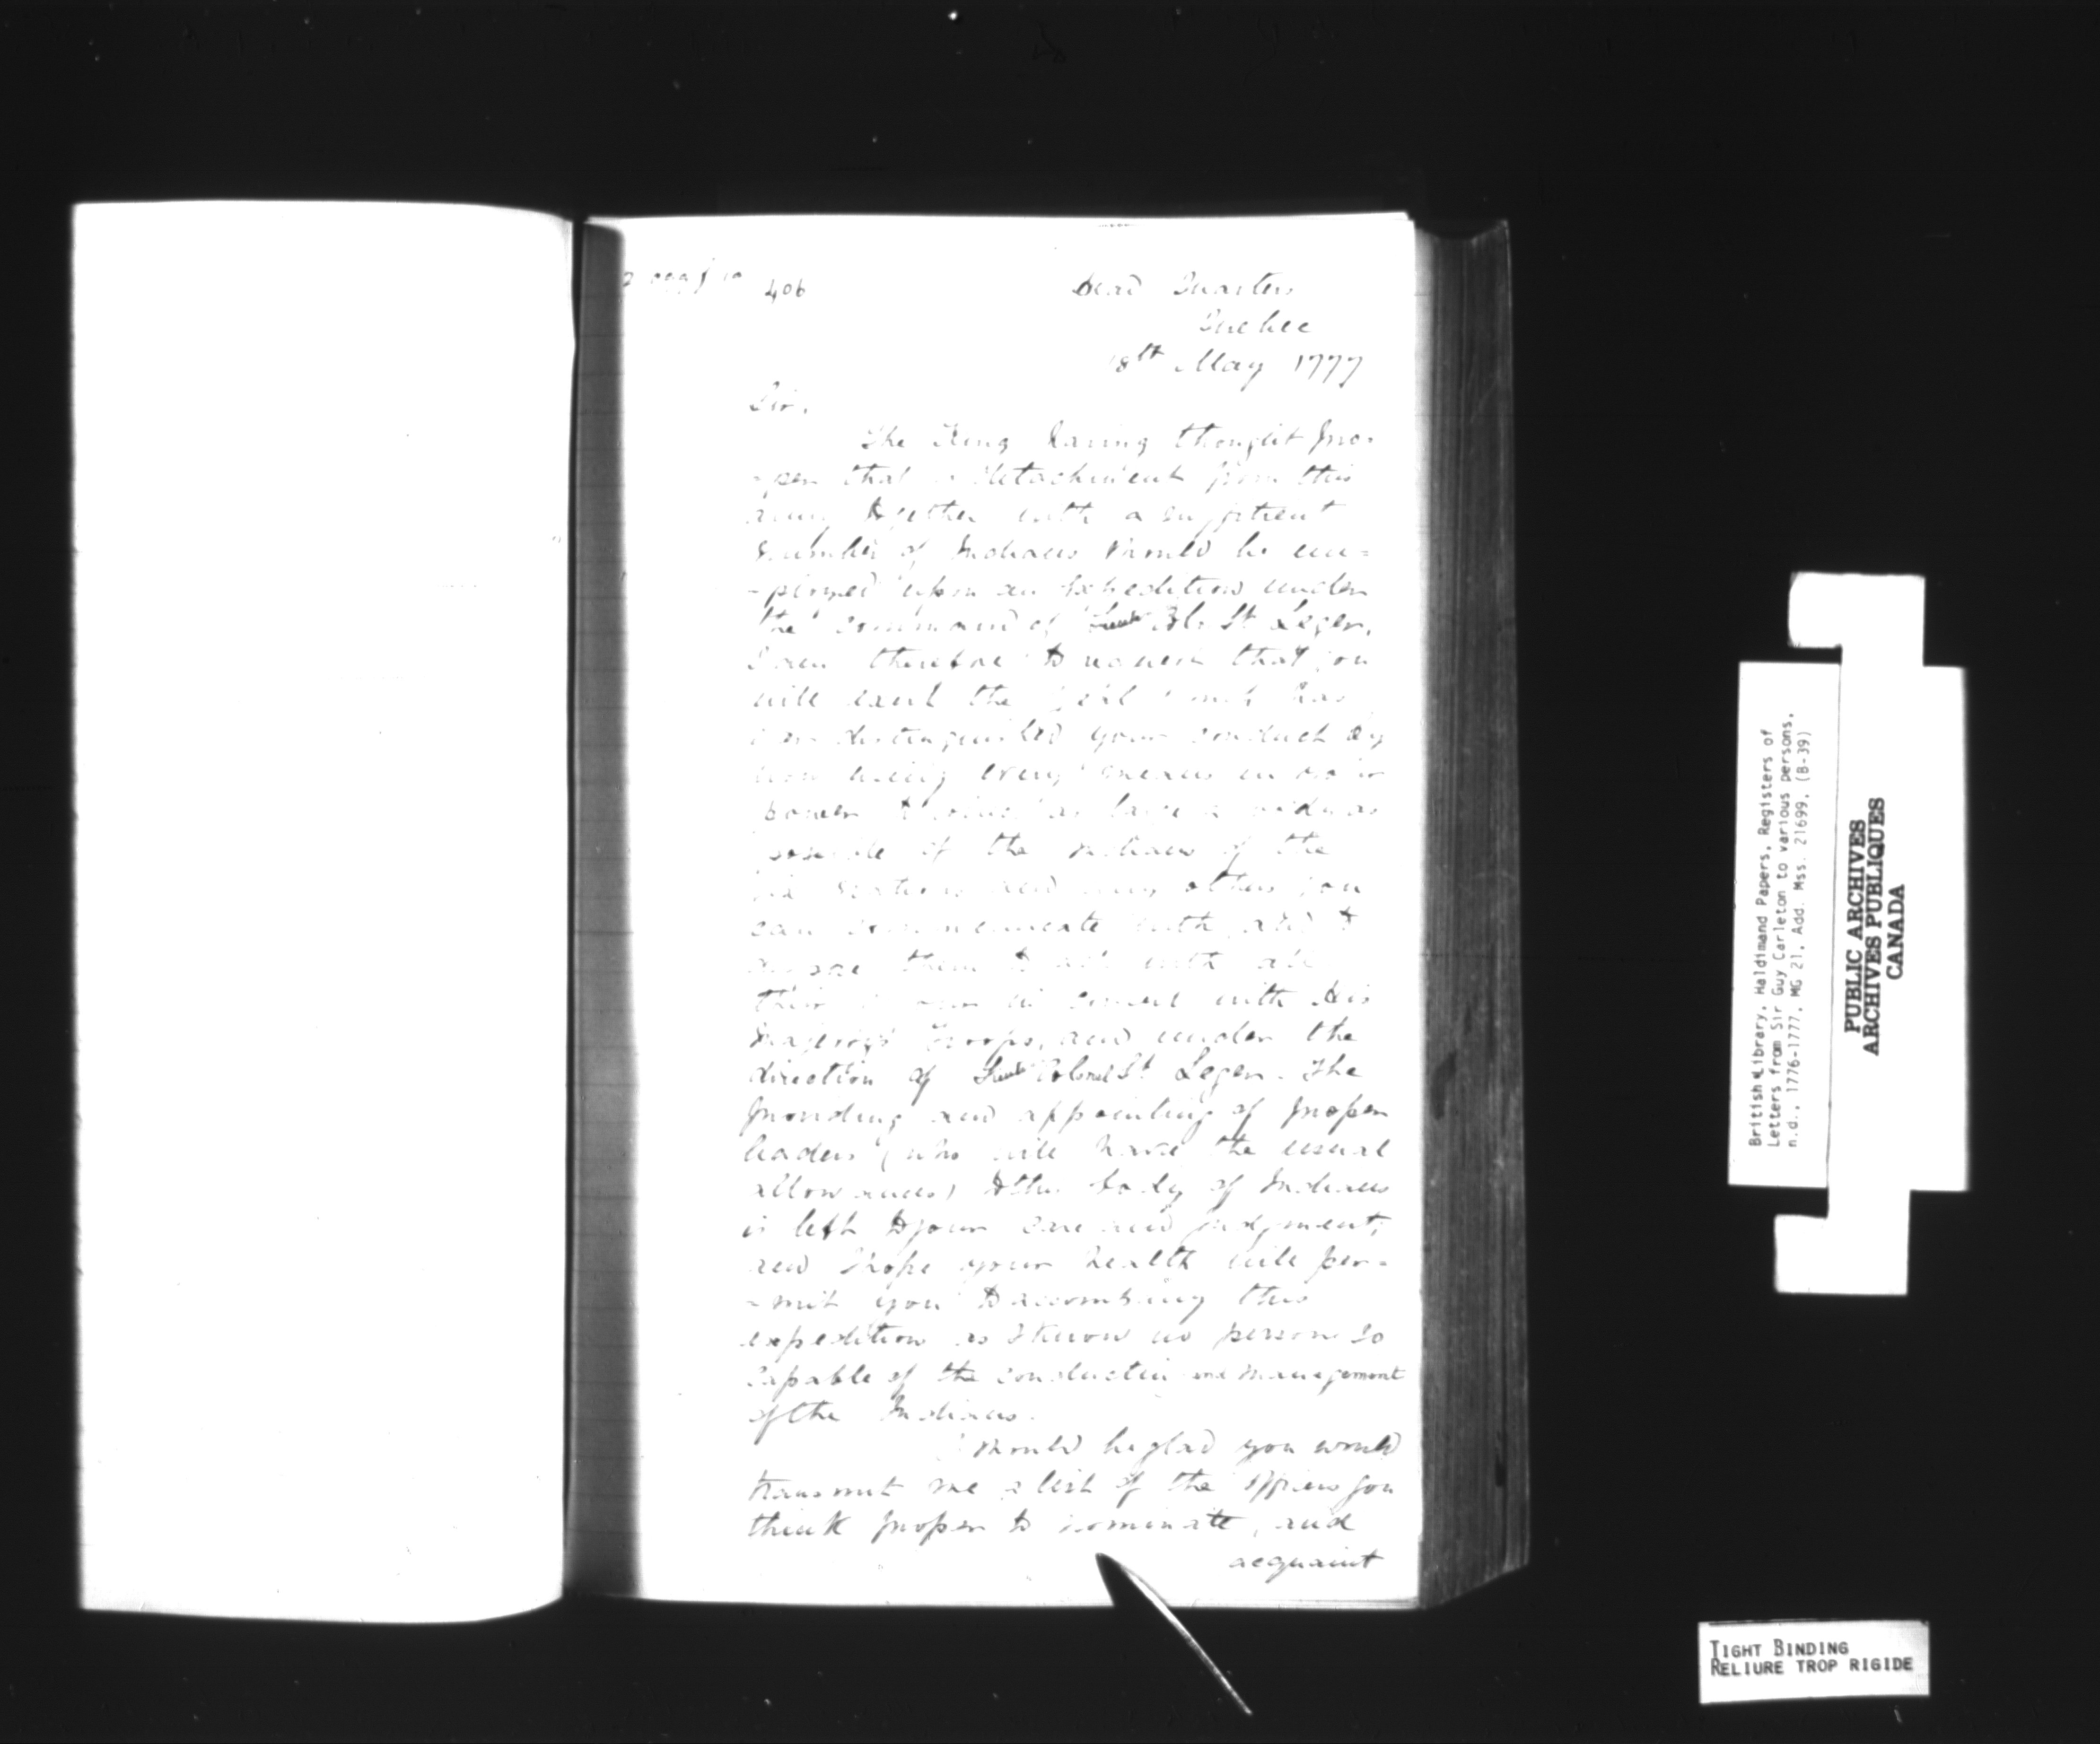 406
Head Quarters
Quebec
18th May 1777
Sir,
The King having thought pro-
-per that a detachment from this
army together with a sufficient
number of Indians should be em=
-ployed upon an Expedition under
the command of Lieut Col. St Leger,
I am therefore to request that you
will exert the zeal which has
ever distinguished your conduct by
using every means in your
power to bring as large a body as
possible of the Indians of the
six Nations and any others you
can communicate with, and to
engage them to act with all
their power in concert with His
Majesty's Troops, and under the
direction of Lieut Colonel St Leger. The
providing and appointing of proper
leaders (who will have the usual
allowances) to the body of Indians
is left to your care and judgment;
and I hope your health will per=
-mit you to accompany this
expedition as I know no person so
capable of the conducting and management
of the Indians.
I should be glad you would
transmit me a list of the Officers you
think proper to nominate, and
acquaint
British Library, Haldimand Papers, Registers of
Letters from Sir Guy Carleton to various persons,
n.d., 1776-1777, MG 21, Add. Mss. 21699, (B-39)
PUBLIC ARCHIVES
ARCHIVES PUBLIQUES
CANADA
TIGHT BINDING
RELIURE TROP RIGIDE